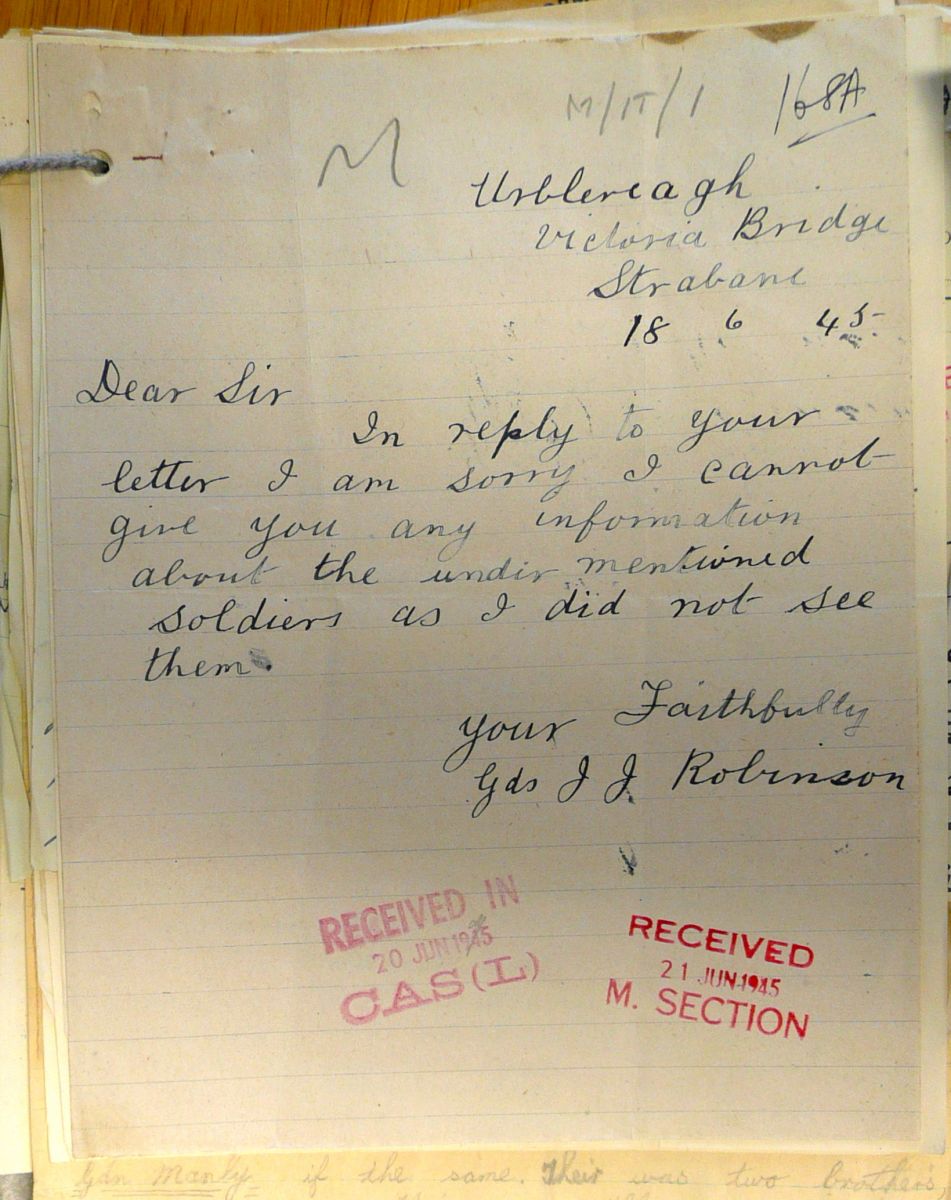 M/IT/1 168A
M
Urblereagh
Victoria Bridge
Strabane
18 6 45
Dear Sir
In reply to your
letter I am sorry I cannot
give you any information
about the under mentioned
soldiers as I did not see
them.
your Faithfully
Gds J J Robinson
RECEIVED IN
20 JUN 1945
CAS(L)
RECEIVED
21 JUN 1945
M. SECTION
Gdn Manly if the same. Their was two brothers